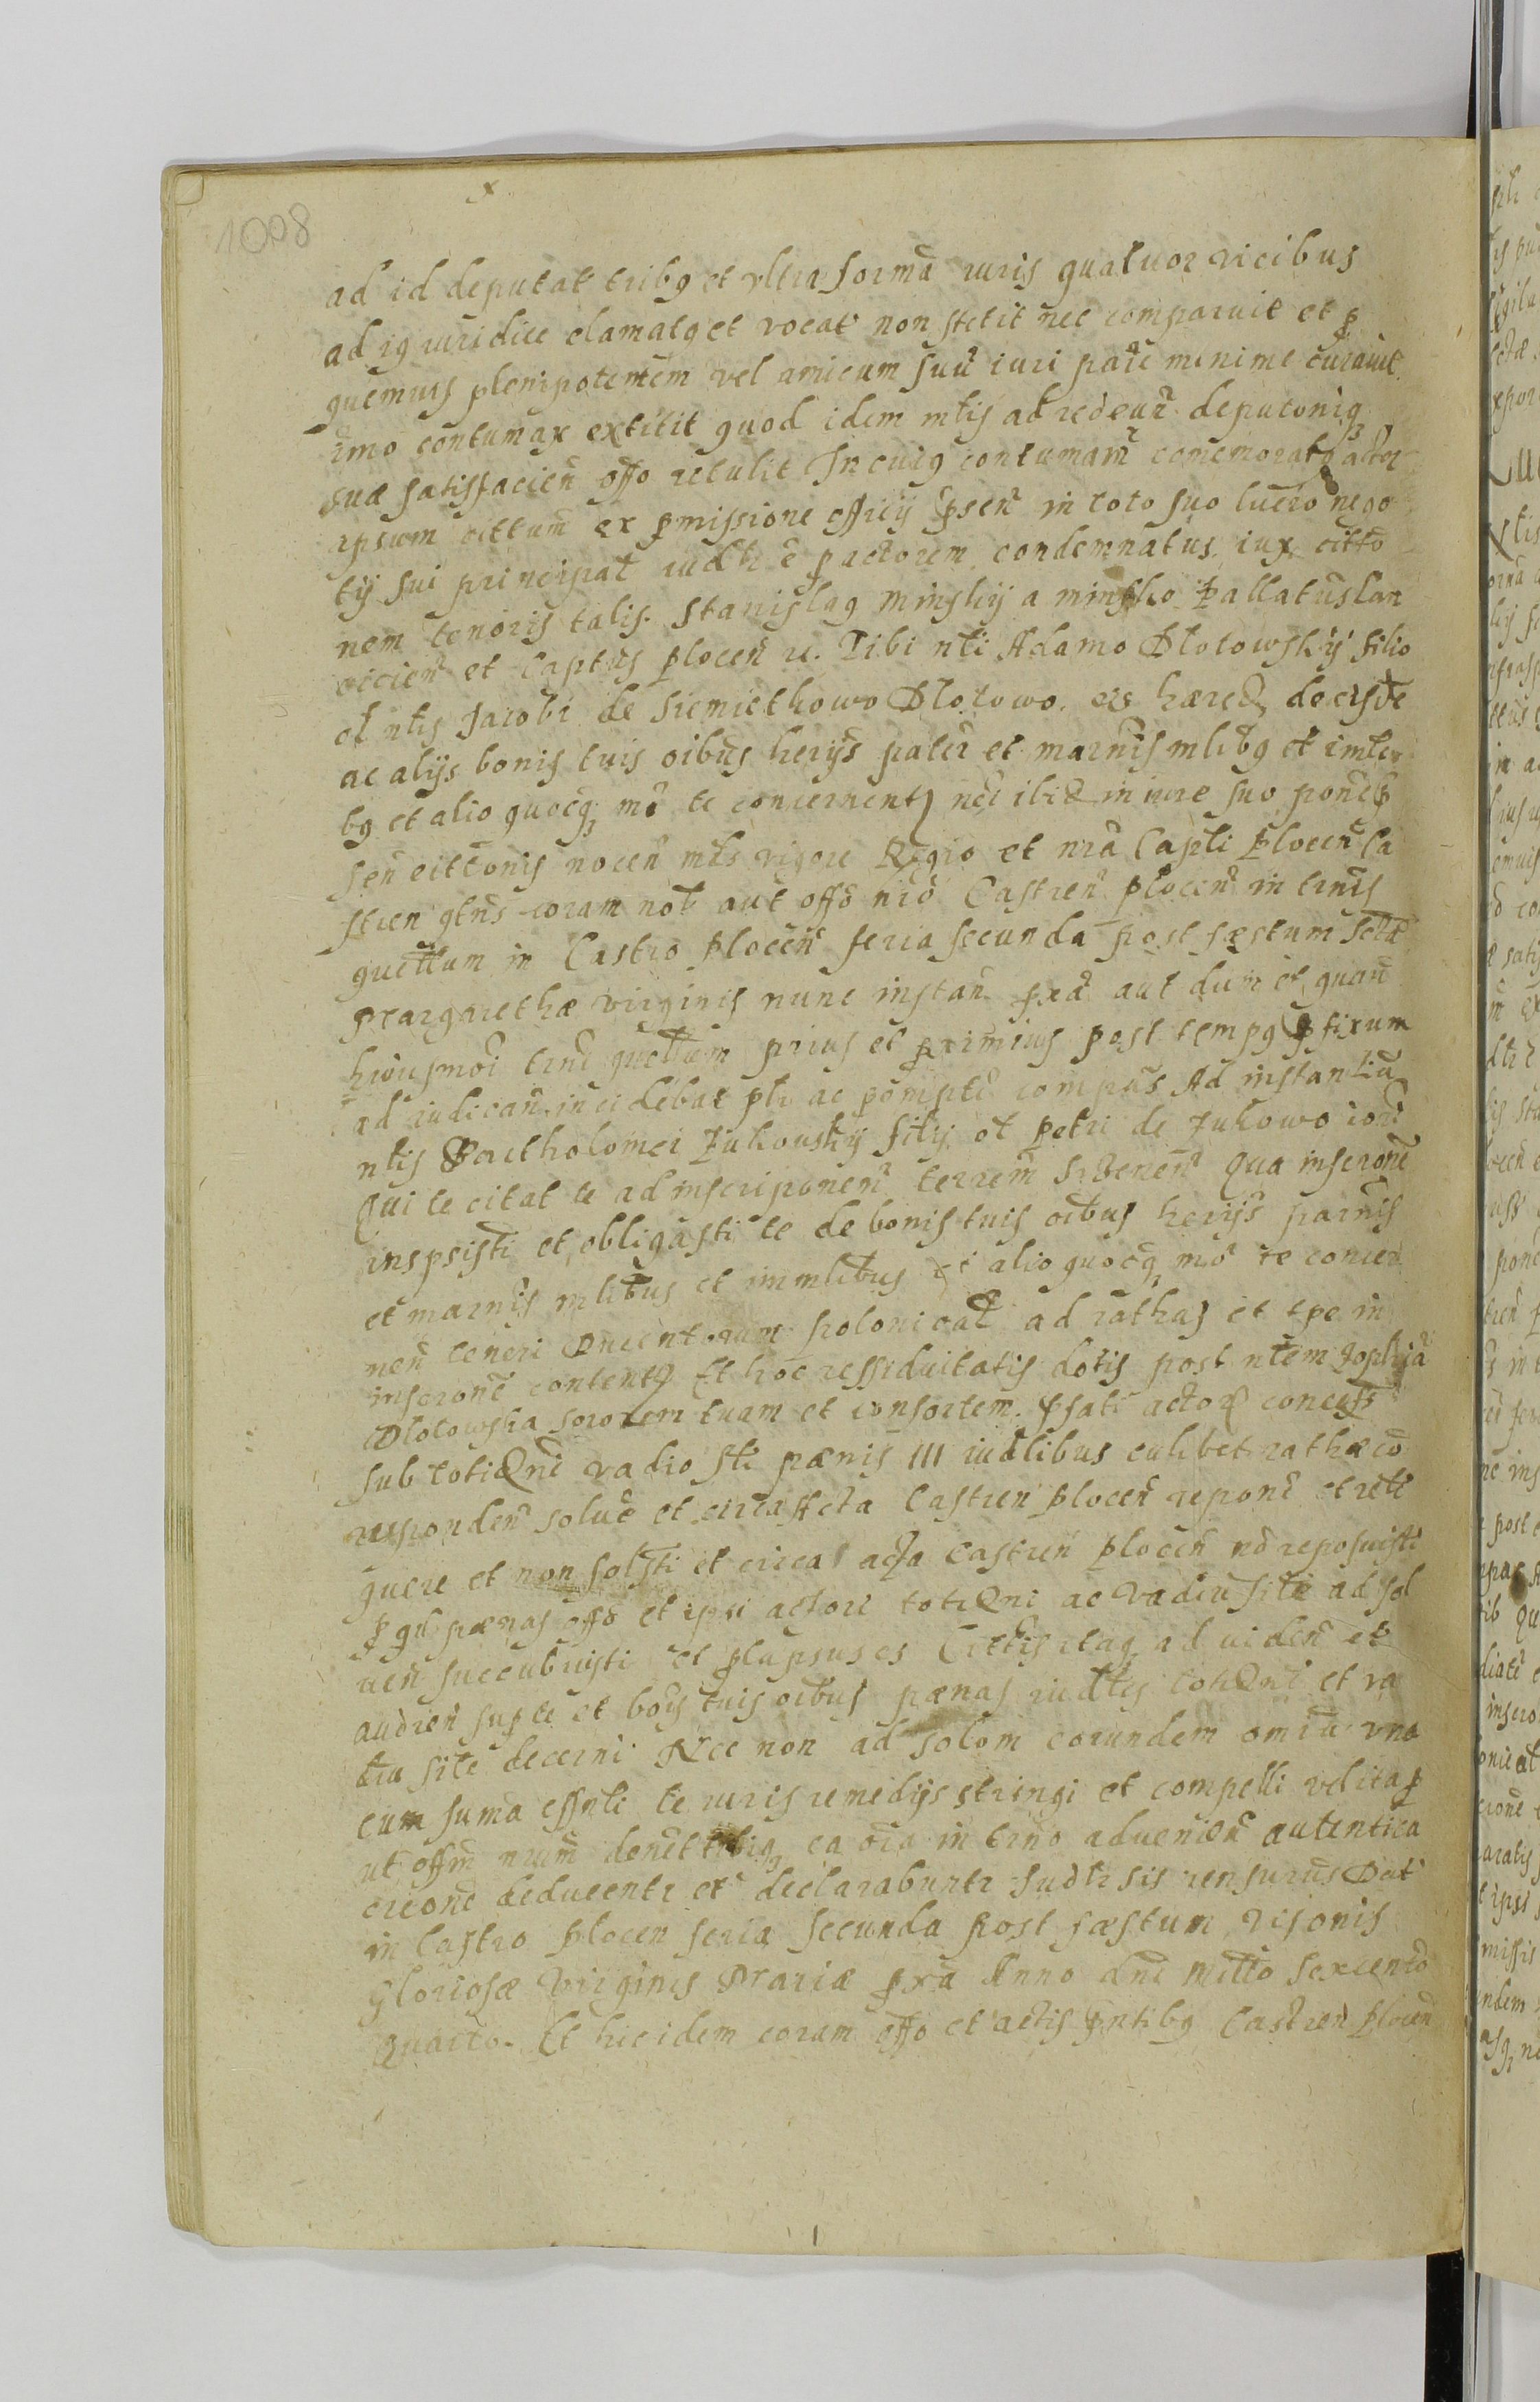 1008
ad id deputat tribq et vltra formā iuris quatuor vicibus
ad iq iuridice clamatq et vocat non stetit nec comparuit et p
quemvis plenipotentem vel amicum suū iuri parē minime curavit
imo contumax extitit quod idem mtis ad redeūn deputoniq
suæ satisfacien offo retulit In cuiq contumam comemoratq actor
ipsum cittum ex pmissione officij psen in toto suo lucro nego
tij sui principat iudtr ē p actorem condemnatus, iux citto
nem tenoris talis. Stanislaq Minskij a minsko Pallatus lan
cicien et Captus plocen rc. Tibi nti Adamo Dlotowskij filio
ol ntis Jacobi de Siemiethowo Dlotowo. eis hæred, de eisde
ac alijs bonis tuis oibus herijs patern et marnis mlibq et imler
bq et alio quocq mo te concernent nec ibid in iure suo ponē p
sen cittonis nocen mts vigore Regio et nrā Capli Plocen Ca
stren qtns coram nob aut offo nro Castren plocen in trmis
quellum in Castro Plocen feria secunda post fæstum Sctæ
Margarethæ virginis nunc instan pxa aut dum et quan
hiousmoi trmi quellum prius et pximius post tempq pfixum
ad iudican incidebat plr ac pompte compās Ad instantiā
ntis Bartholomei Zukowskij filij ol Petri de Zukowo
Qui te citat te ad inscriponem terrem Srzenen Qua inscrone
inspsisti et obligasti te de bonis tuis oibus herijs parnis
et marnis mlibus et immlibus et alio quocq mo te concer
nen teneri ducentorum polonical ad rathas et tpe in
inscrone content Et hoc ressiduitatis dotis post ntem Zophiā
Dlotowska sororem tuam et consortem psati actor concess
sub totiQni vadio sti pænis III iudlibus cuilibet rathæ co
responden solvē et circa Acta Castren Plocen reponē et reli
quere et non solsti et circa acta Castren Plocen nō reposuisti
p qd pænas offo et ipsi actori totiQni ac vadiu site ad sol
uen succubuisti et plapsus es Cittis itaq ad uiden et
audien sup te et bois tuis oibus pænas iudles totiQni et va
diu site decerni Nec non ad solom eorundem omiu vna
cum suma effnti te iuris remedijs stringi et compelli vel ita p
ut offm nrum denet tibiq ea oia in trmo advenien autentica
creone deducentr et declarabuntr Iudtr sis rensurus Dat
in Castro Plocen feria secunda post fæstum visonis
Gloriosæ Virginis Mariæ pxa Anno dni Mitto Sexcento
quarto. Et hic idem coram offo et actis pntibq Castren Plocen